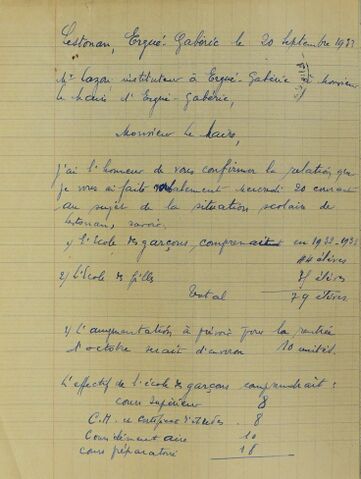 Lestonan, Ergué-Gabéric le 20 Septembre 1933
Mr Lazou instituteur à Ergué-Gabéric à Monsieur
le Maire d'Ergué-Gabéric,
Monsieur le Maire,
J'ai l'honneur de vous confirmer la relation que
je vous ai faite verbalement mercredi 20 courant
au sujet de la situation scolaire de
Lestonan, savoir.
1) L'école des garçons, comprenait en 1932-1933
44 élèves
2) L'école des filles élèves
Total 79 élèves.
2) L'augmentation à prévoir pour la rentrée
d'octobre serait d'environ 10 unités.
L'effectif de l'école des garçons comprendrait :
cours supérieur 8
C.M. et certificat d'études . 8
Cours élémentaire 10
cours préparatoire 18